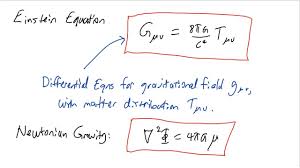 Einstein Equation
G_μν = 8πG/c² T_μν
Differential Eqns for gravitational field g_μν,
with matter distribution T_μν.
Newtonian Gravity:
∇²Φ = 4πG μ